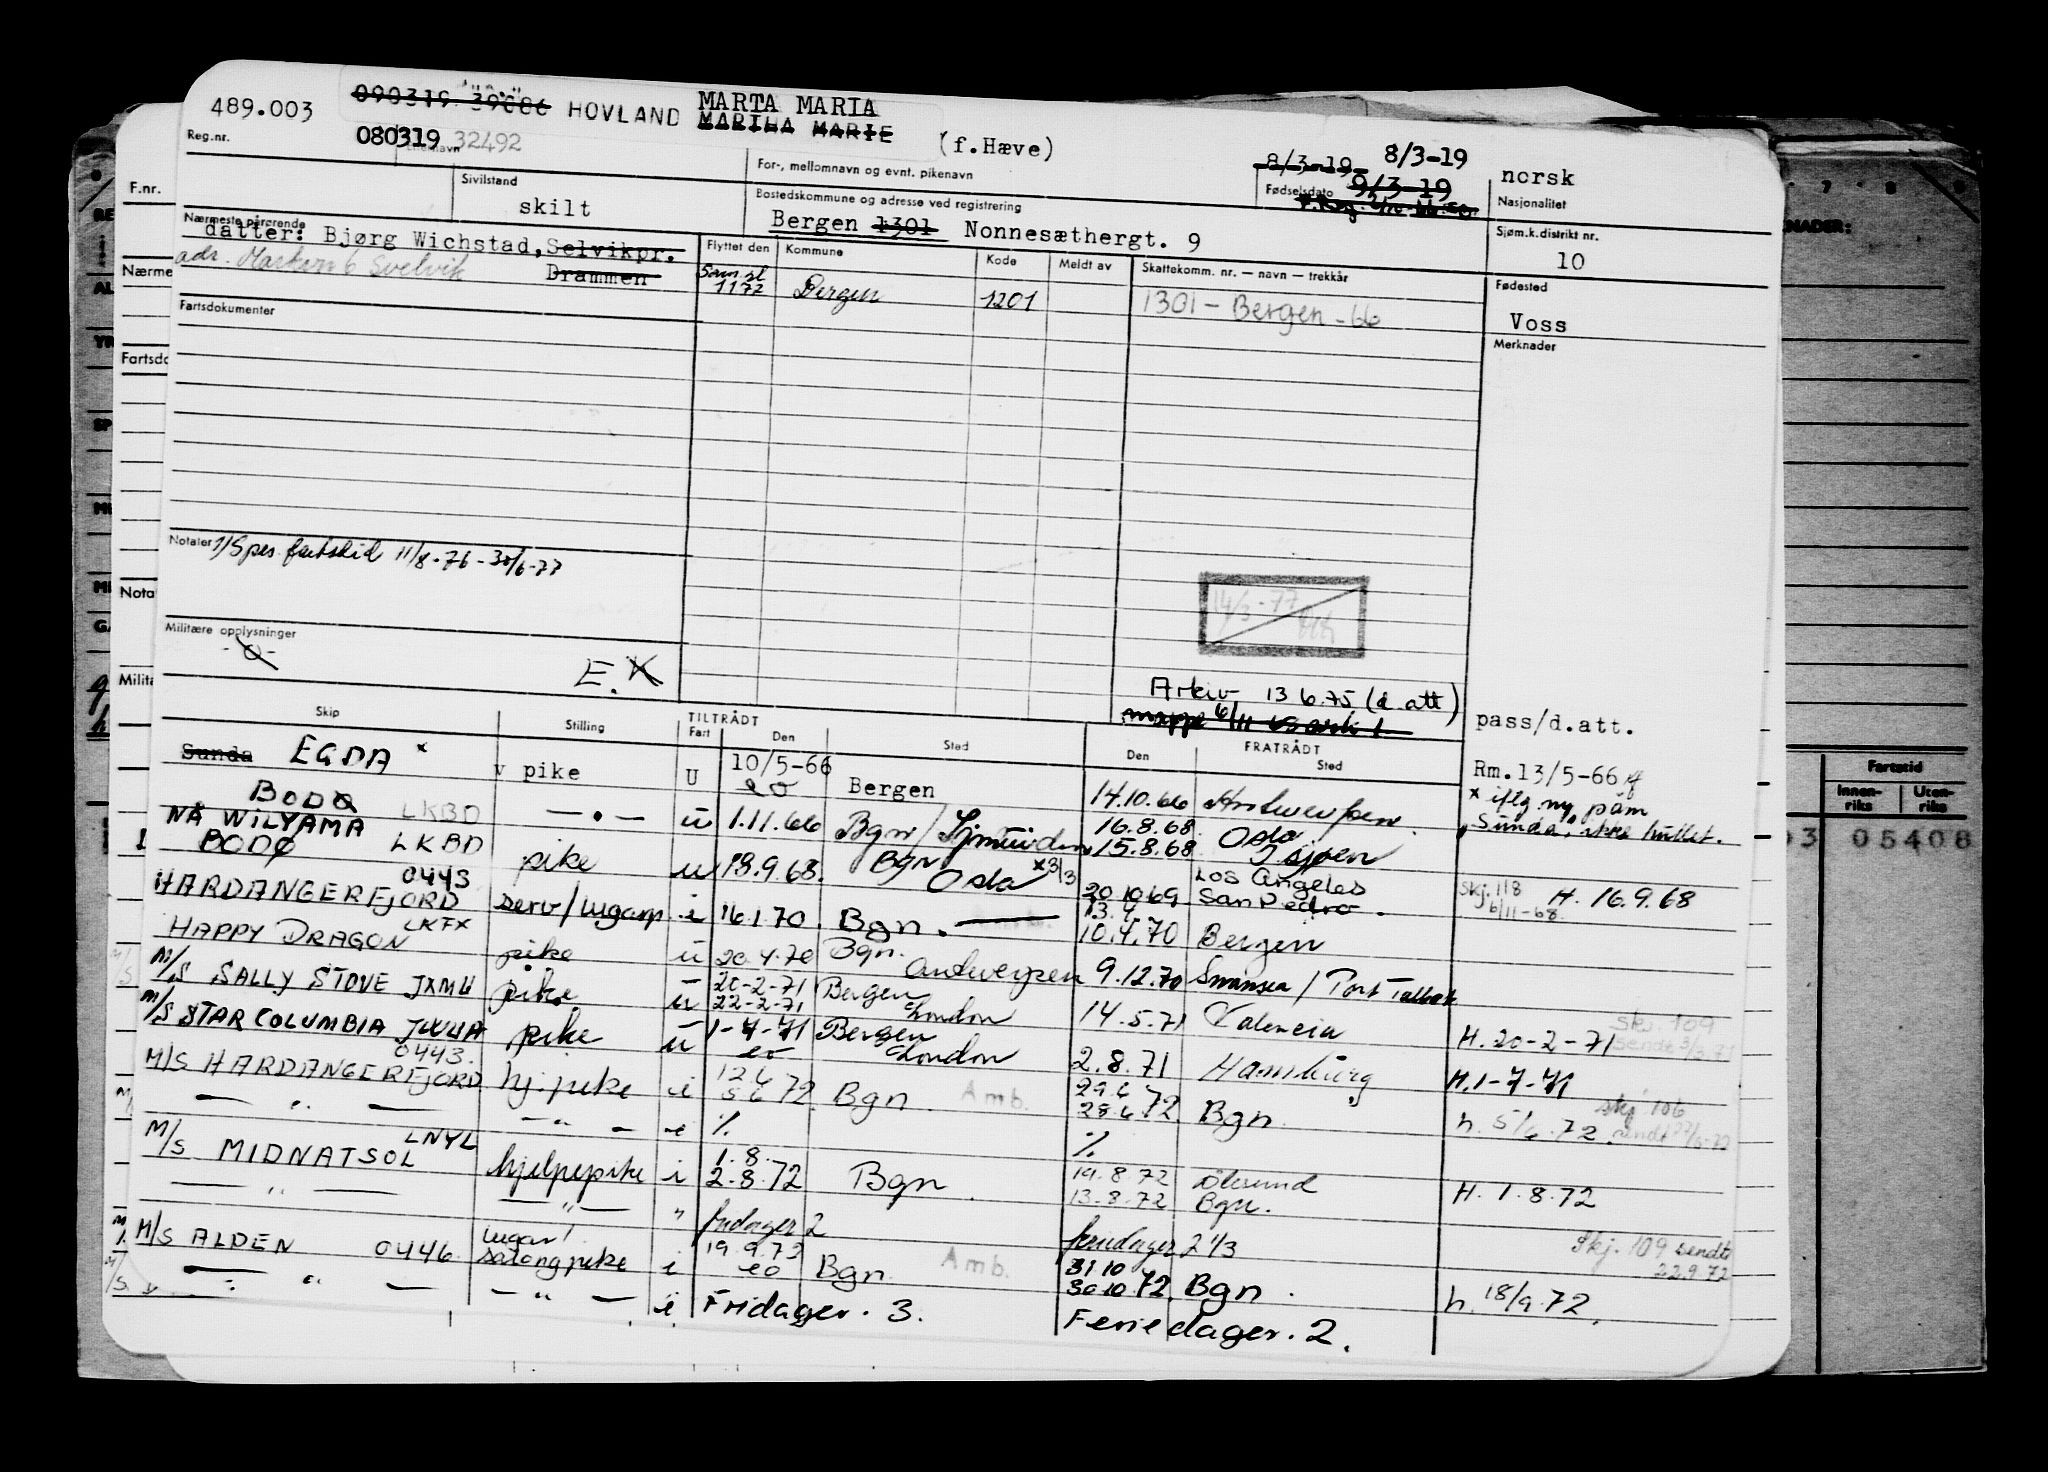 489.003 090319 HOVLAND MARTA MARIA
MARTHA MARIE (f.Hæve)
Reg.nr. 080319 32492
For-, mellomnavn og evnt. pikenavn
8/3-19 8/3-19
Fødselsdato 9/3-19
norsk
Nasjonalitet
Sivilstand
skilt
Bostedskommune og adresse ved registrering
Bergen 1301 Nonnesæthergt. 9
Sjøm.k.distrikt nr.
10
Nærmeste pårørende
datter: Bjørg Wichstad, Selvikpr.
Drammen
adr. Svelvik
Flyttet den Kommune Kode Meldt av Skattekomm. nr. — navn — trekkår
1177 Bergen 1201 1301 - Bergen - 66
Fødested
Voss
Merknader
Fartsdokumenter
Notater 1/Spes fartstid 11/8-76 - 30/6-77
14/3-77
Militære opplysninger
-0-
E.K
Arkiv 13.6.75 (d.att)
pass/d.att.
Skip Stilling TILTRÅDT Fart Den Sted FRATRÅDT Den Sted
Sunda EGDA x v pike U 10/5-66 Bergen 14.10.66 Antwerpen Rm.13/5-66
x iflg ny påm
"Sunda", ikke hullet.
BODØ LKBD — " — u 1.11.66 Bgn / Ijmuiden 16.8.68 Oslo
NÅ WILYAMA 15.8.68
BODØ LKBD pike u 18.9.68. Bgn Oslo x3/3 20.10.69 Los Angeles San Pedro. Skj. 118 6/11-68. H. 16.9.68
HARDANGERFJORD 0443 serv/lugarp i 16.1.70 Bgn. — 10.4.70 Bergen
HAPPY DRAGON LKFX pike u 20.4.70 Bgn. Antwerpen 9.12.70 Swansea / Port Talbot
M/S SALLY STOVE JXMU pike u 20-2-71 22-2-71 Bergen London 14.5.71 Valencia H. 20-2-71 Skj. 109
M/S STAR COLUMBIA pike u 1-7-71 Bergen London 2.8.71 Hamburg H. 1-7-71
M/S HARDANGERFJORD 0443. hj.pike i 12.6 5.6 72 Bgn. Amb. 29.6 28.6.72 Bgn. h. 5/6.72. Skj. 106
— " — — " — i % %
M/S MIDNATSOL LNYL hjelpepike i 1.8. 2.8.72 Bgn. 19.8.72 Ålesund H. 1.8.72
13.8.72 Bgn.
— " — — " — " fridager 2 feriedager 2 1/3
M/S ALDEN 0446 lugar/ salongpike i 19.9.72 Bgn. Amb. 31.10 30.10.72. Bgn. h. 18/9.72. Skj. 109 sendt 22.9.72
— " — — " — i Fridager. 3. Feriedager. 2.
F.nr.
Fartstid
Innen-riks Uten-riks
05408